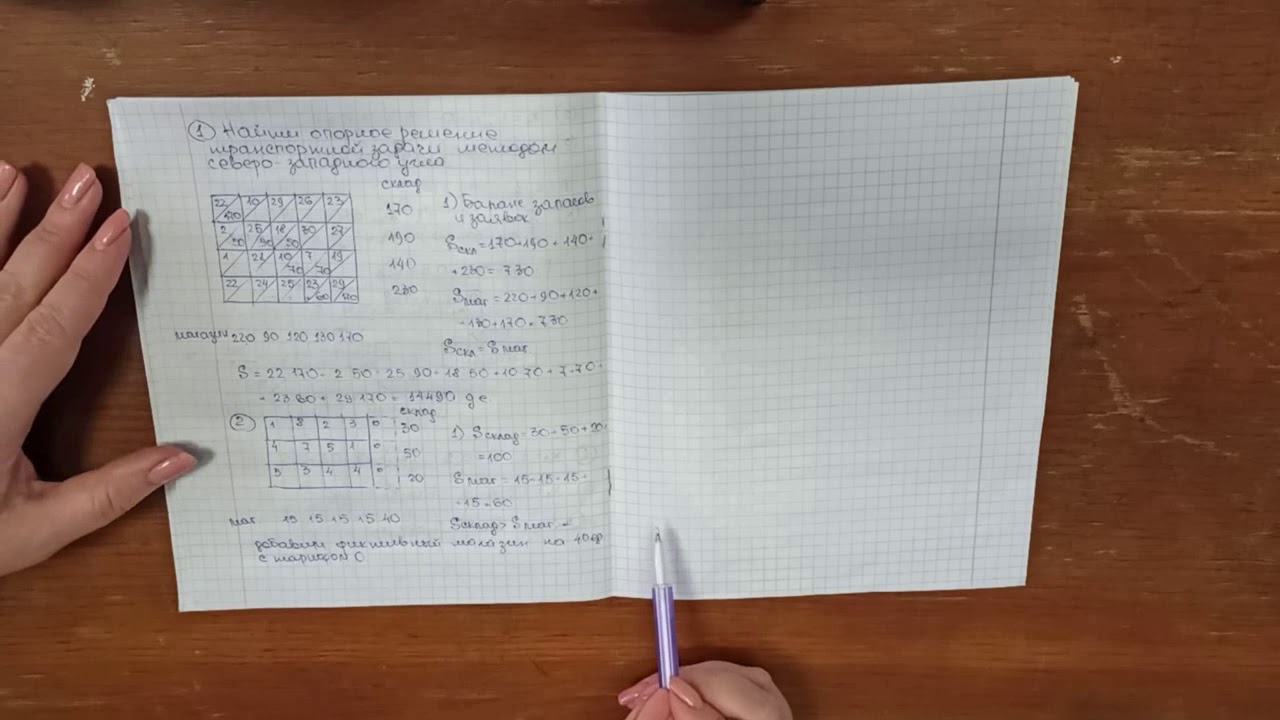 ① Найти опорное решение
транспортной задачи методом
северо-западного угла
склад
22 10 29 26 23 170
170
2 25 18 30 27 190
50 90 50
1 21 10 7 19 140
70 70
22 24 25 23 29 230
60 170
магазин 220 90 120 130 170
1) Баланс запасов
и заявок
Sскл = 170+190+140+
+230 = 730
Sмаг = 220+90+120+
+130+170=730
Sскл = Sмаг
S = 22·170+2·50+25·90+18·50+10·70+7·70+
+23·60+29·170 = 14490 де
② склад
1 8 2 3 0 30
4 7 5 1 0 50
5 3 4 4 0 20
маг 15 15 15 15 40
1) Sсклад = 30+50+20
=100
Sмаг = 15+15+15+
+15=60
Sсклад > Sмаг =
добавим фиктивный магазин на 40 ед
с тарифом 0